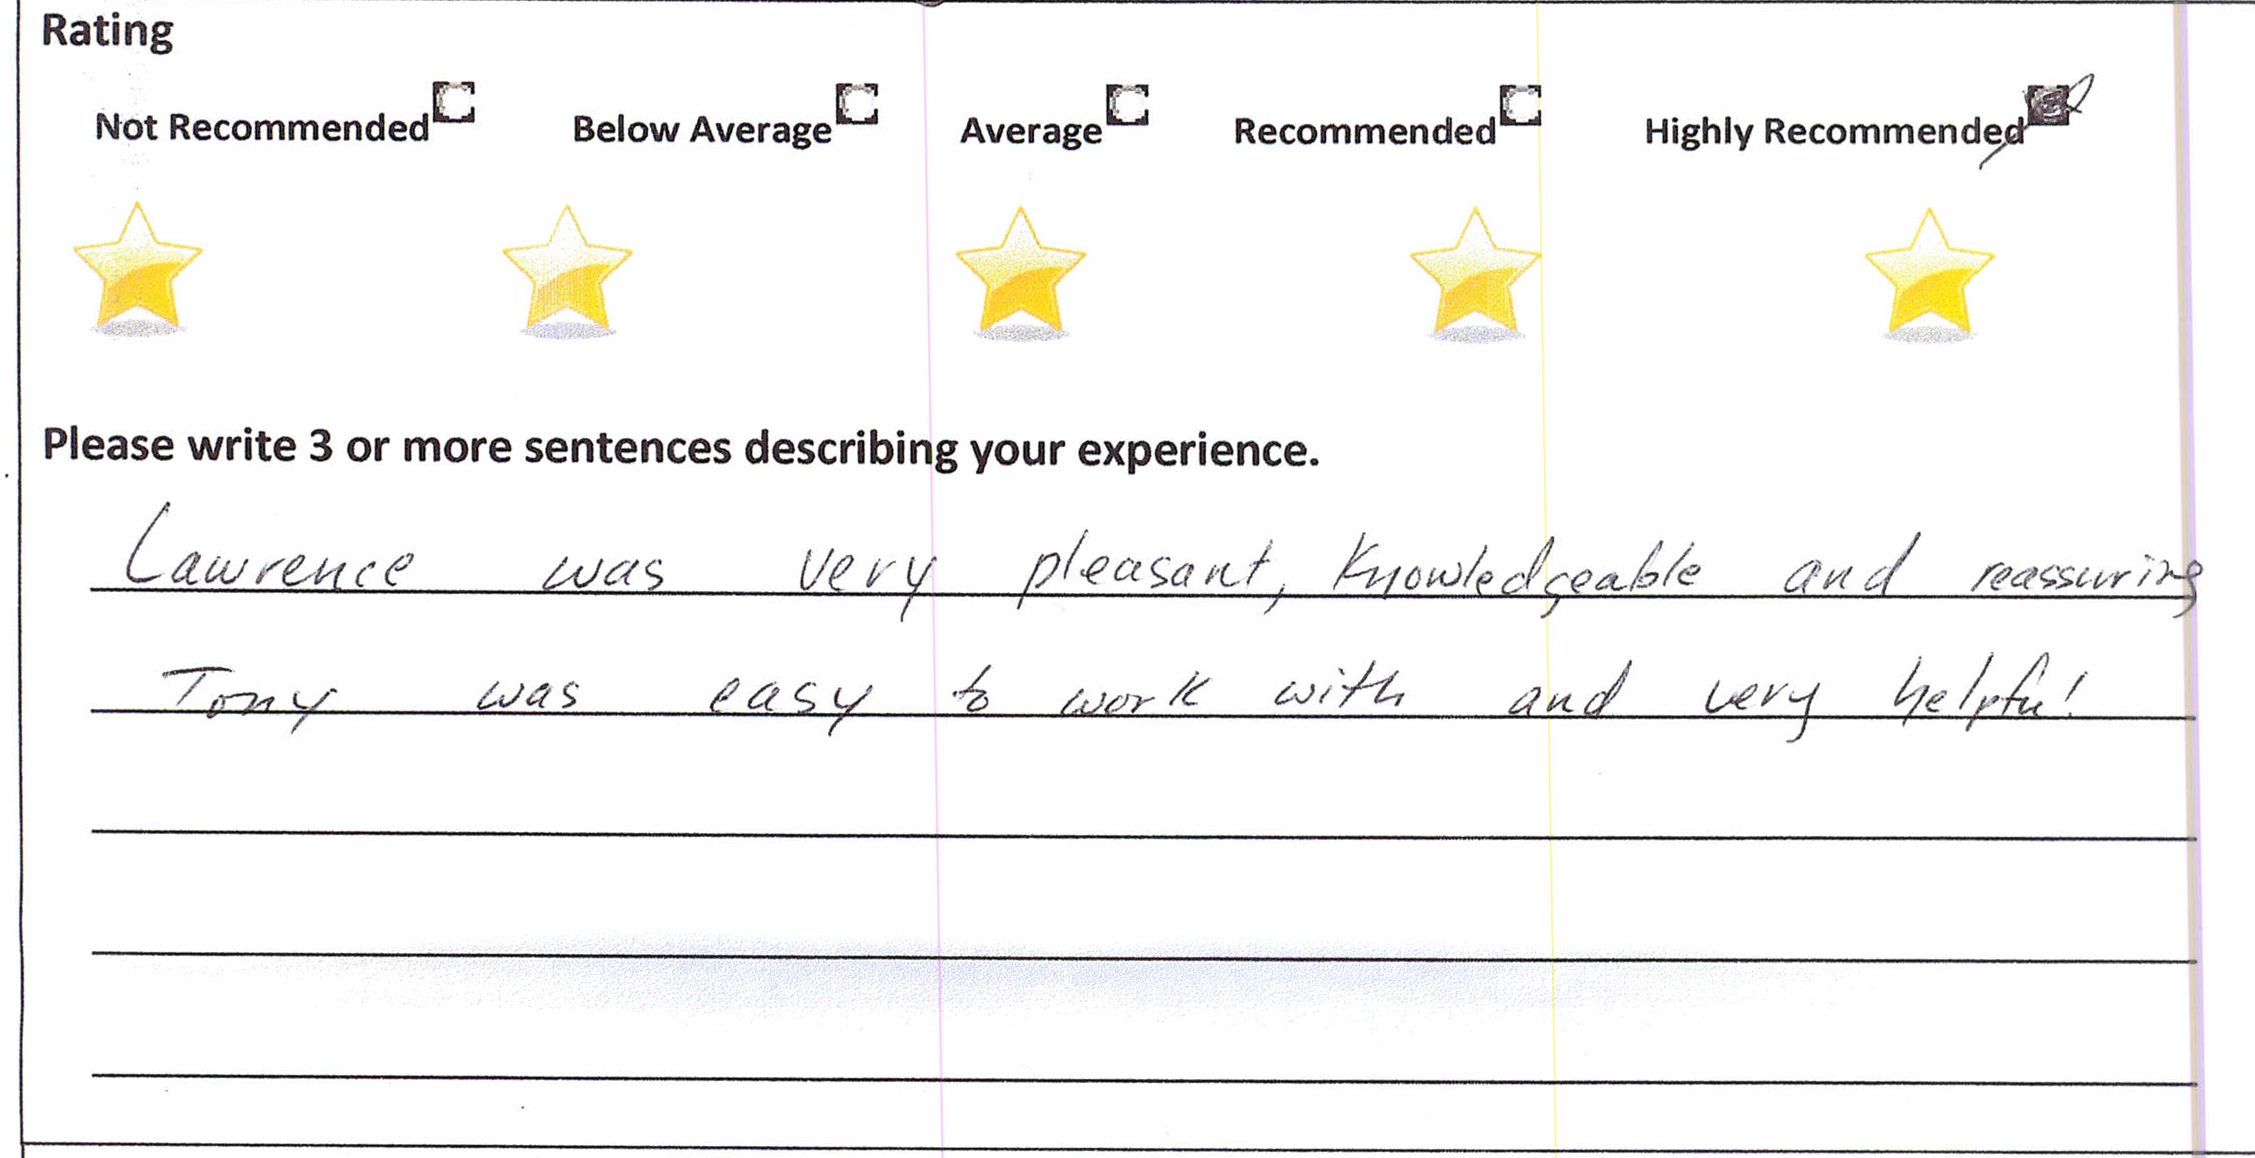 Rating
Not Recommended Below Average Average Recommended Highly Recommended
Please write 3 or more sentences describing your experience.
Lawrence was very pleasant, Knowledgeable and reassuring
Tony was easy to work with and very helpful